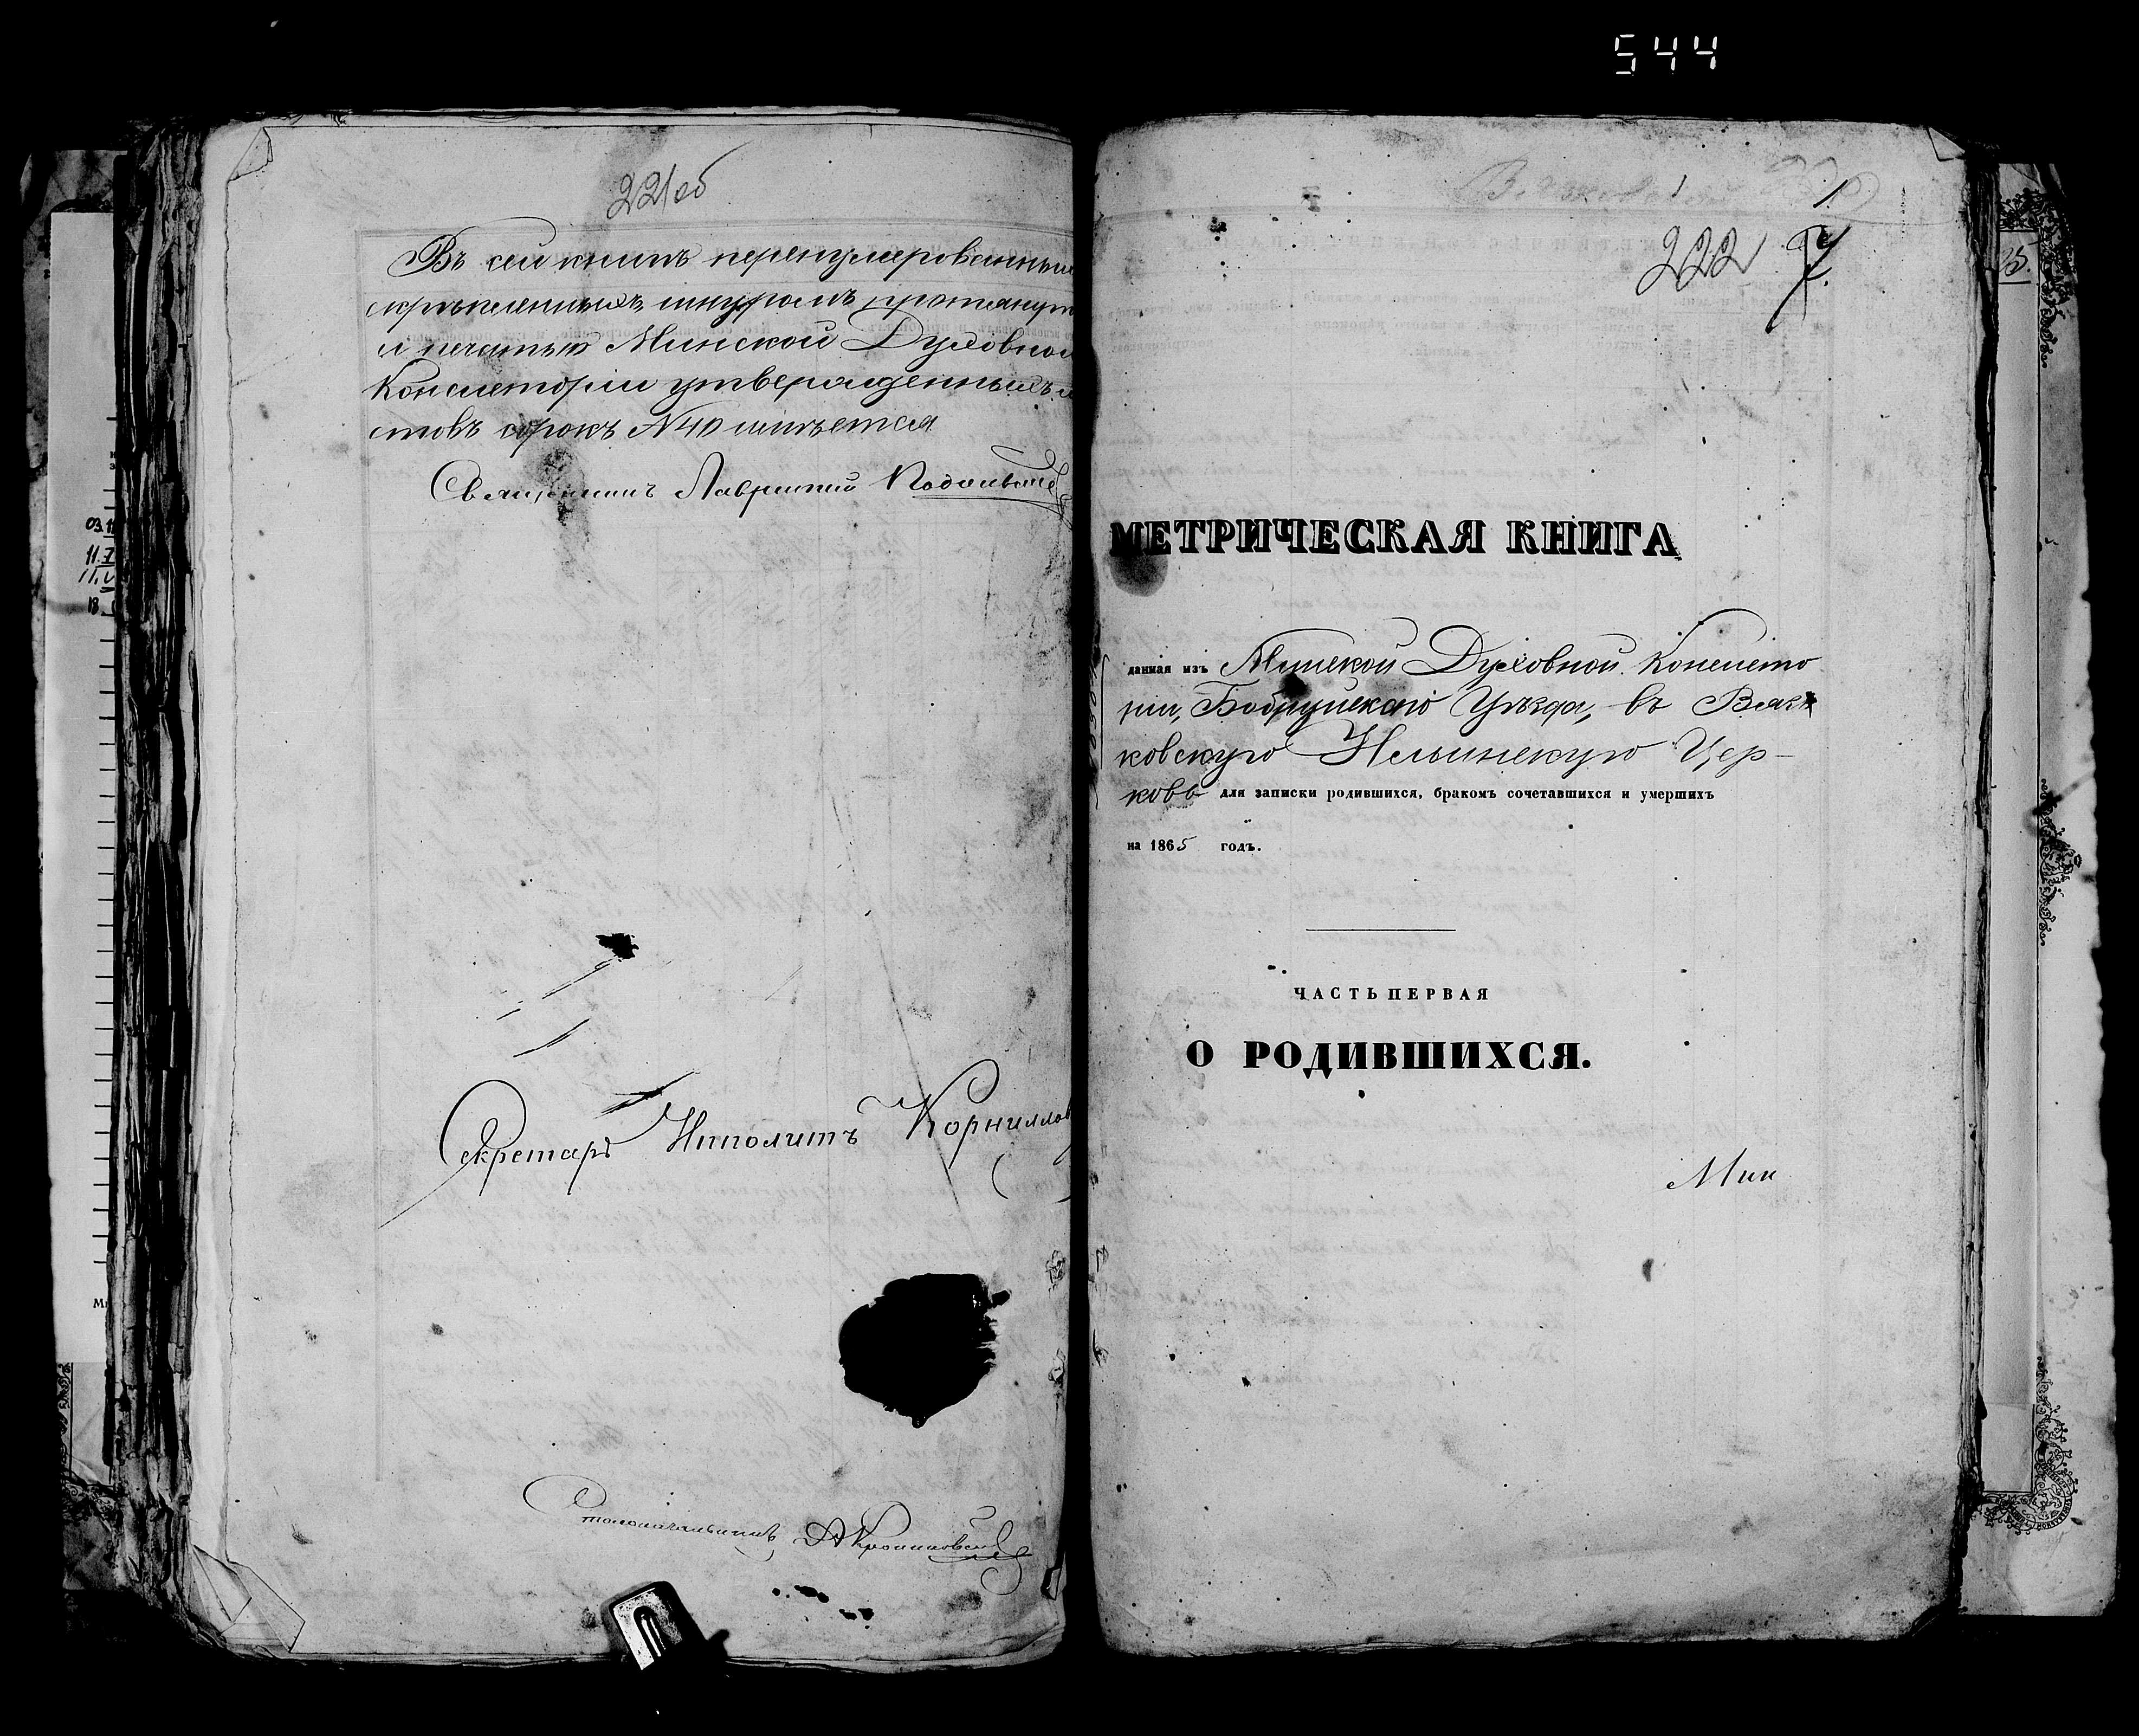 544
221об
Въ сей книгѣ перенумерованныхъ
скрѣпленныхъ шнуромъ протянут
и печатью Минской Духовной
Консисторіи утвержденныхъ ли
стовъ сорокъ N40 имѣется
Священникъ Лаврентій
Секретарь Ипполитъ Корниллов
Столоначальникъ
1
222
МЕТРИЧЕСКАЯ КНИГА
данная изъ Минской Духовной Консисто
ріи, Бобруйскаго Уѣзда, въ Вяз
ковскую Ильинскую Цер-
ковь для записки родившихся, бракомъ сочетавшихся и умершихъ
на 1865 годъ.
ЧАСТЬ ПЕРВАЯ
О РОДИВШИХСЯ.
Мин